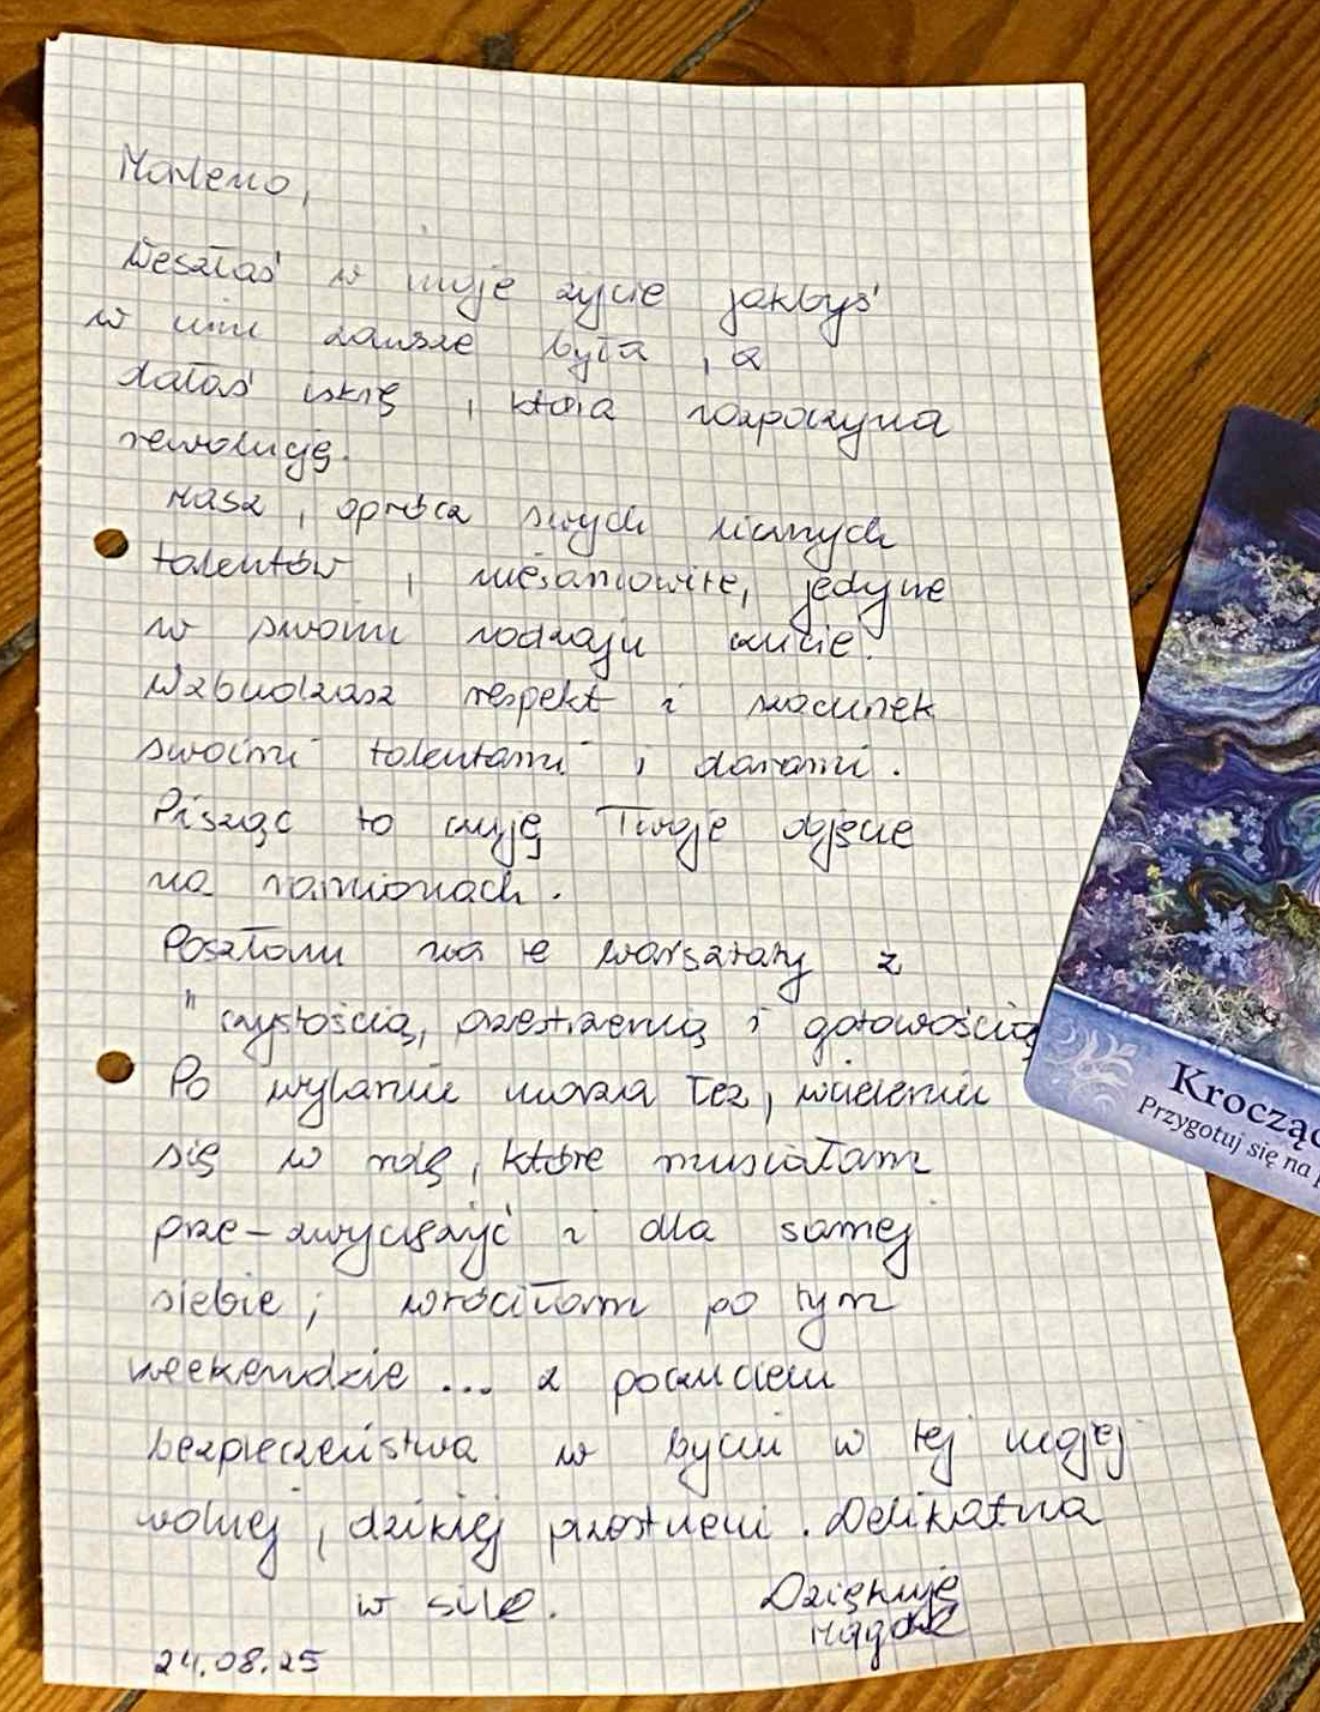 Marleno,
Weszłaś w moje życie jakbyś
w nim zawsze była, a
dałaś iskrę, która rozpoczyna
rewolucję.
Masz, oprócz swych licznych
talentów, niesamowite, jedyne
w swoim rodzaju czucie.
Wzbudzasz respekt i szacunek
swoimi talentami i darami.
Pisząc to czuję Twoje objęcie
na ramionach.
Poszłam na te warsztaty z
"czystością, przestrzenią i gotowością
Po wylaniu morza łez, wcieleniu
się w rolę, które musiałam
prze-zwyciężyć i dla samej
siebie; wróciłam po tym
weekendzie... z poczuciem
bezpieczeństwa w byciu w tej mojej
wolnej, dzikiej przestrzeni. Delikatna
w sile.
Dziękuję
Magda
24.08.25
Krocząc
Przygotuj się na